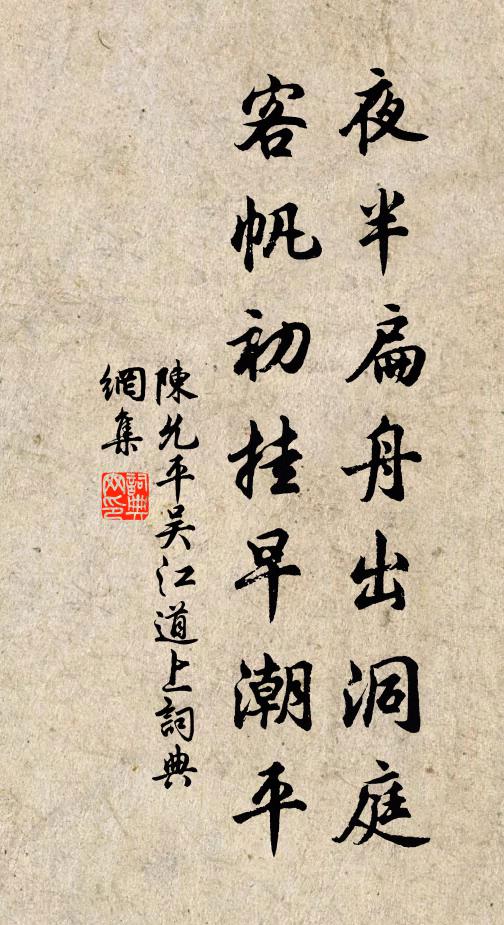 夜半扁舟出洞庭
客帆初挂早潮平
陳允平吴江道上詞典
網集
詞典
网印